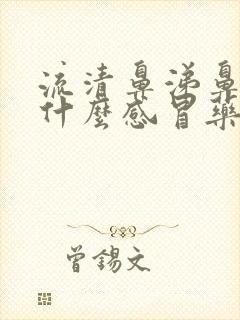 流清鼻涕鼻
什麼感冒藥
曾錫文